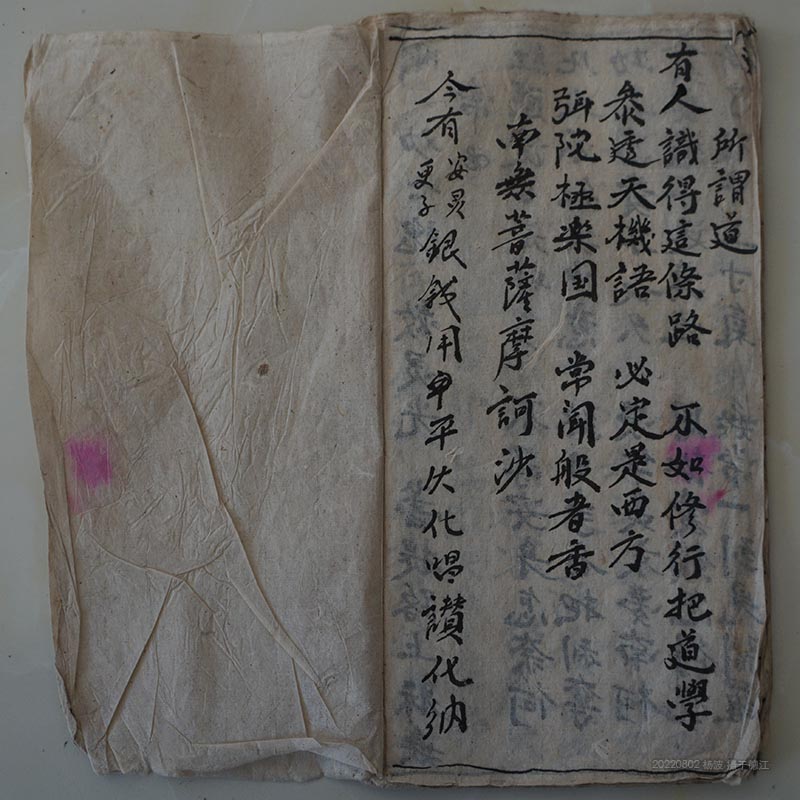 所謂道
有人識得這條路 不如修行把道學
叅透天機語 必定是西方
弭陀極楽国 常聞般者香
南無菩薩摩訶沙
今有 安灵 更子 銀錢用申平伏化唱讃化纳
20220802 杨波